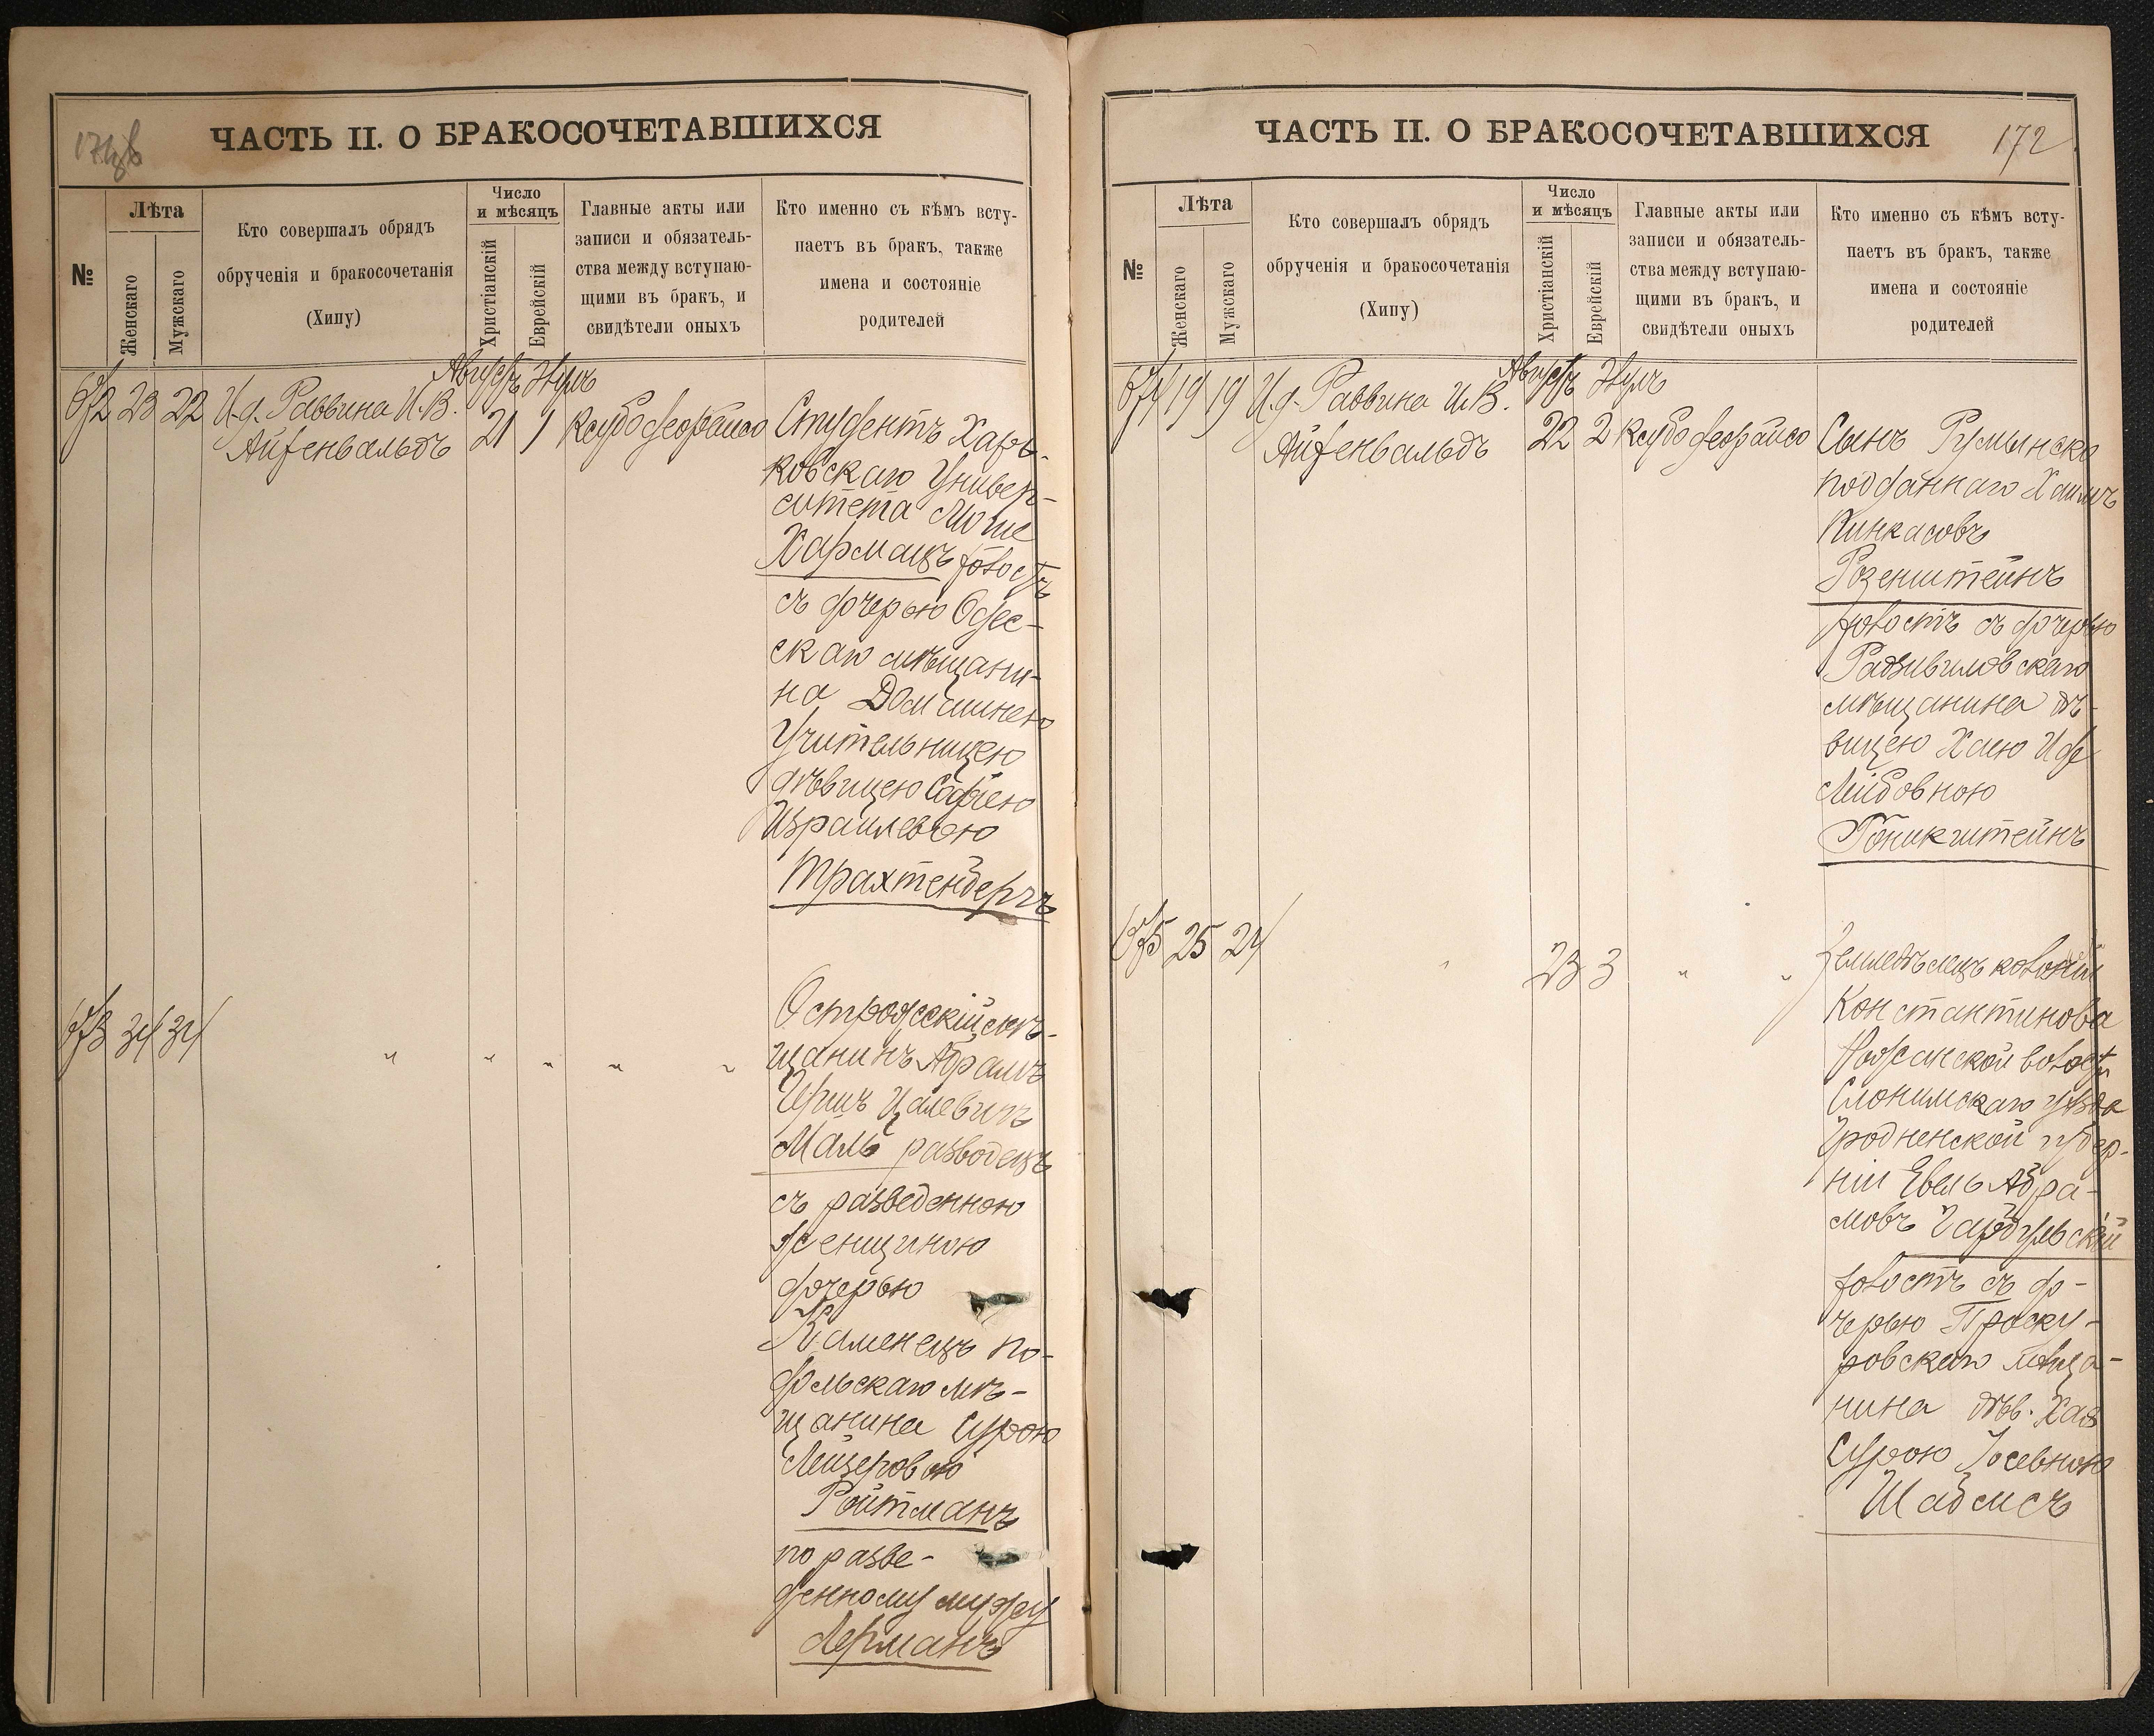 ЧАСТЬ II. О БРАКОСОЧЕТАВШИХСЯ
№
Лѣта
Женскаго
Мужскаго
Кто совершалъ обрядъ
обрученія и бракосочетанія
(Хипу)
Число
и мѣсяцъ
Христіанскій
Еврейскій
Главные акты или
записи и обязатель-
ства между вступаю-
щими въ бракъ, и
свидѣтели оныхъ
Кто именно съ кѣмъ всту-
паетъ въ бракъ, также
имена и состояніе
родителей
Августъ
672 23 22 И. д. Раввина И. В.
Айзенвальдъ 21 1
Студентъ Харь-
ковскаго Универ-
ситета
Хармацъ холостъ
съ дочерью Одес-
скаго мѣщани-
на Домашнею
Учительницею
дѣвицею Софіею
Израилевою
Трахтенбергъ
673 34 34 " " " " "
мѣ-
щанинъ Абрамъ
Герш
Маль разводецъ
съ разведенною
женщиною
дочерью
Каменецъ По-
дольскаго мѣ-
щанина Сурою
Лейзеровою
Ройтманъ
по разве-
денному мужу
Лерманъ
ЧАСТЬ II. О БРАКОСОЧЕТАВШИХСЯ 172
№
Лѣта
Женскаго
Мужскаго
Кто совершалъ обрядъ
обрученія и бракосочетанія
(Хипу)
Число
и мѣсяцъ
Христіанскій
Еврейскій
Главные акты или
записи и обязатель-
ства между вступаю-
щими въ бракъ, и
свидѣтели оныхъ
Кто именно съ кѣмъ всту-
паетъ въ бракъ, также
имена и состояніе
родителей
Августъ
674 19 19 И. д. Раввина И. В.
Айзенвальдъ 22 2
Сынъ Румынско
подданнаго Хаимъ
Пинкасовъ
Розенштейнъ
холостъ съ дочерью
Радзивиловскаго
мѣщанина дѣ-
вицею Хаею
Лейбовною
675 25 24 " 23 3 " "
Земледѣлецъ колоніи
Константинова
волости
Слонимскаго уѣзда
Гродненской губер-
ніи Евель Абра-
мовъ
холостъ съ до-
черью Проску-
ровскаго мѣща-
нина дѣв. Хая
Сурою Іосевною
Шабмсъ